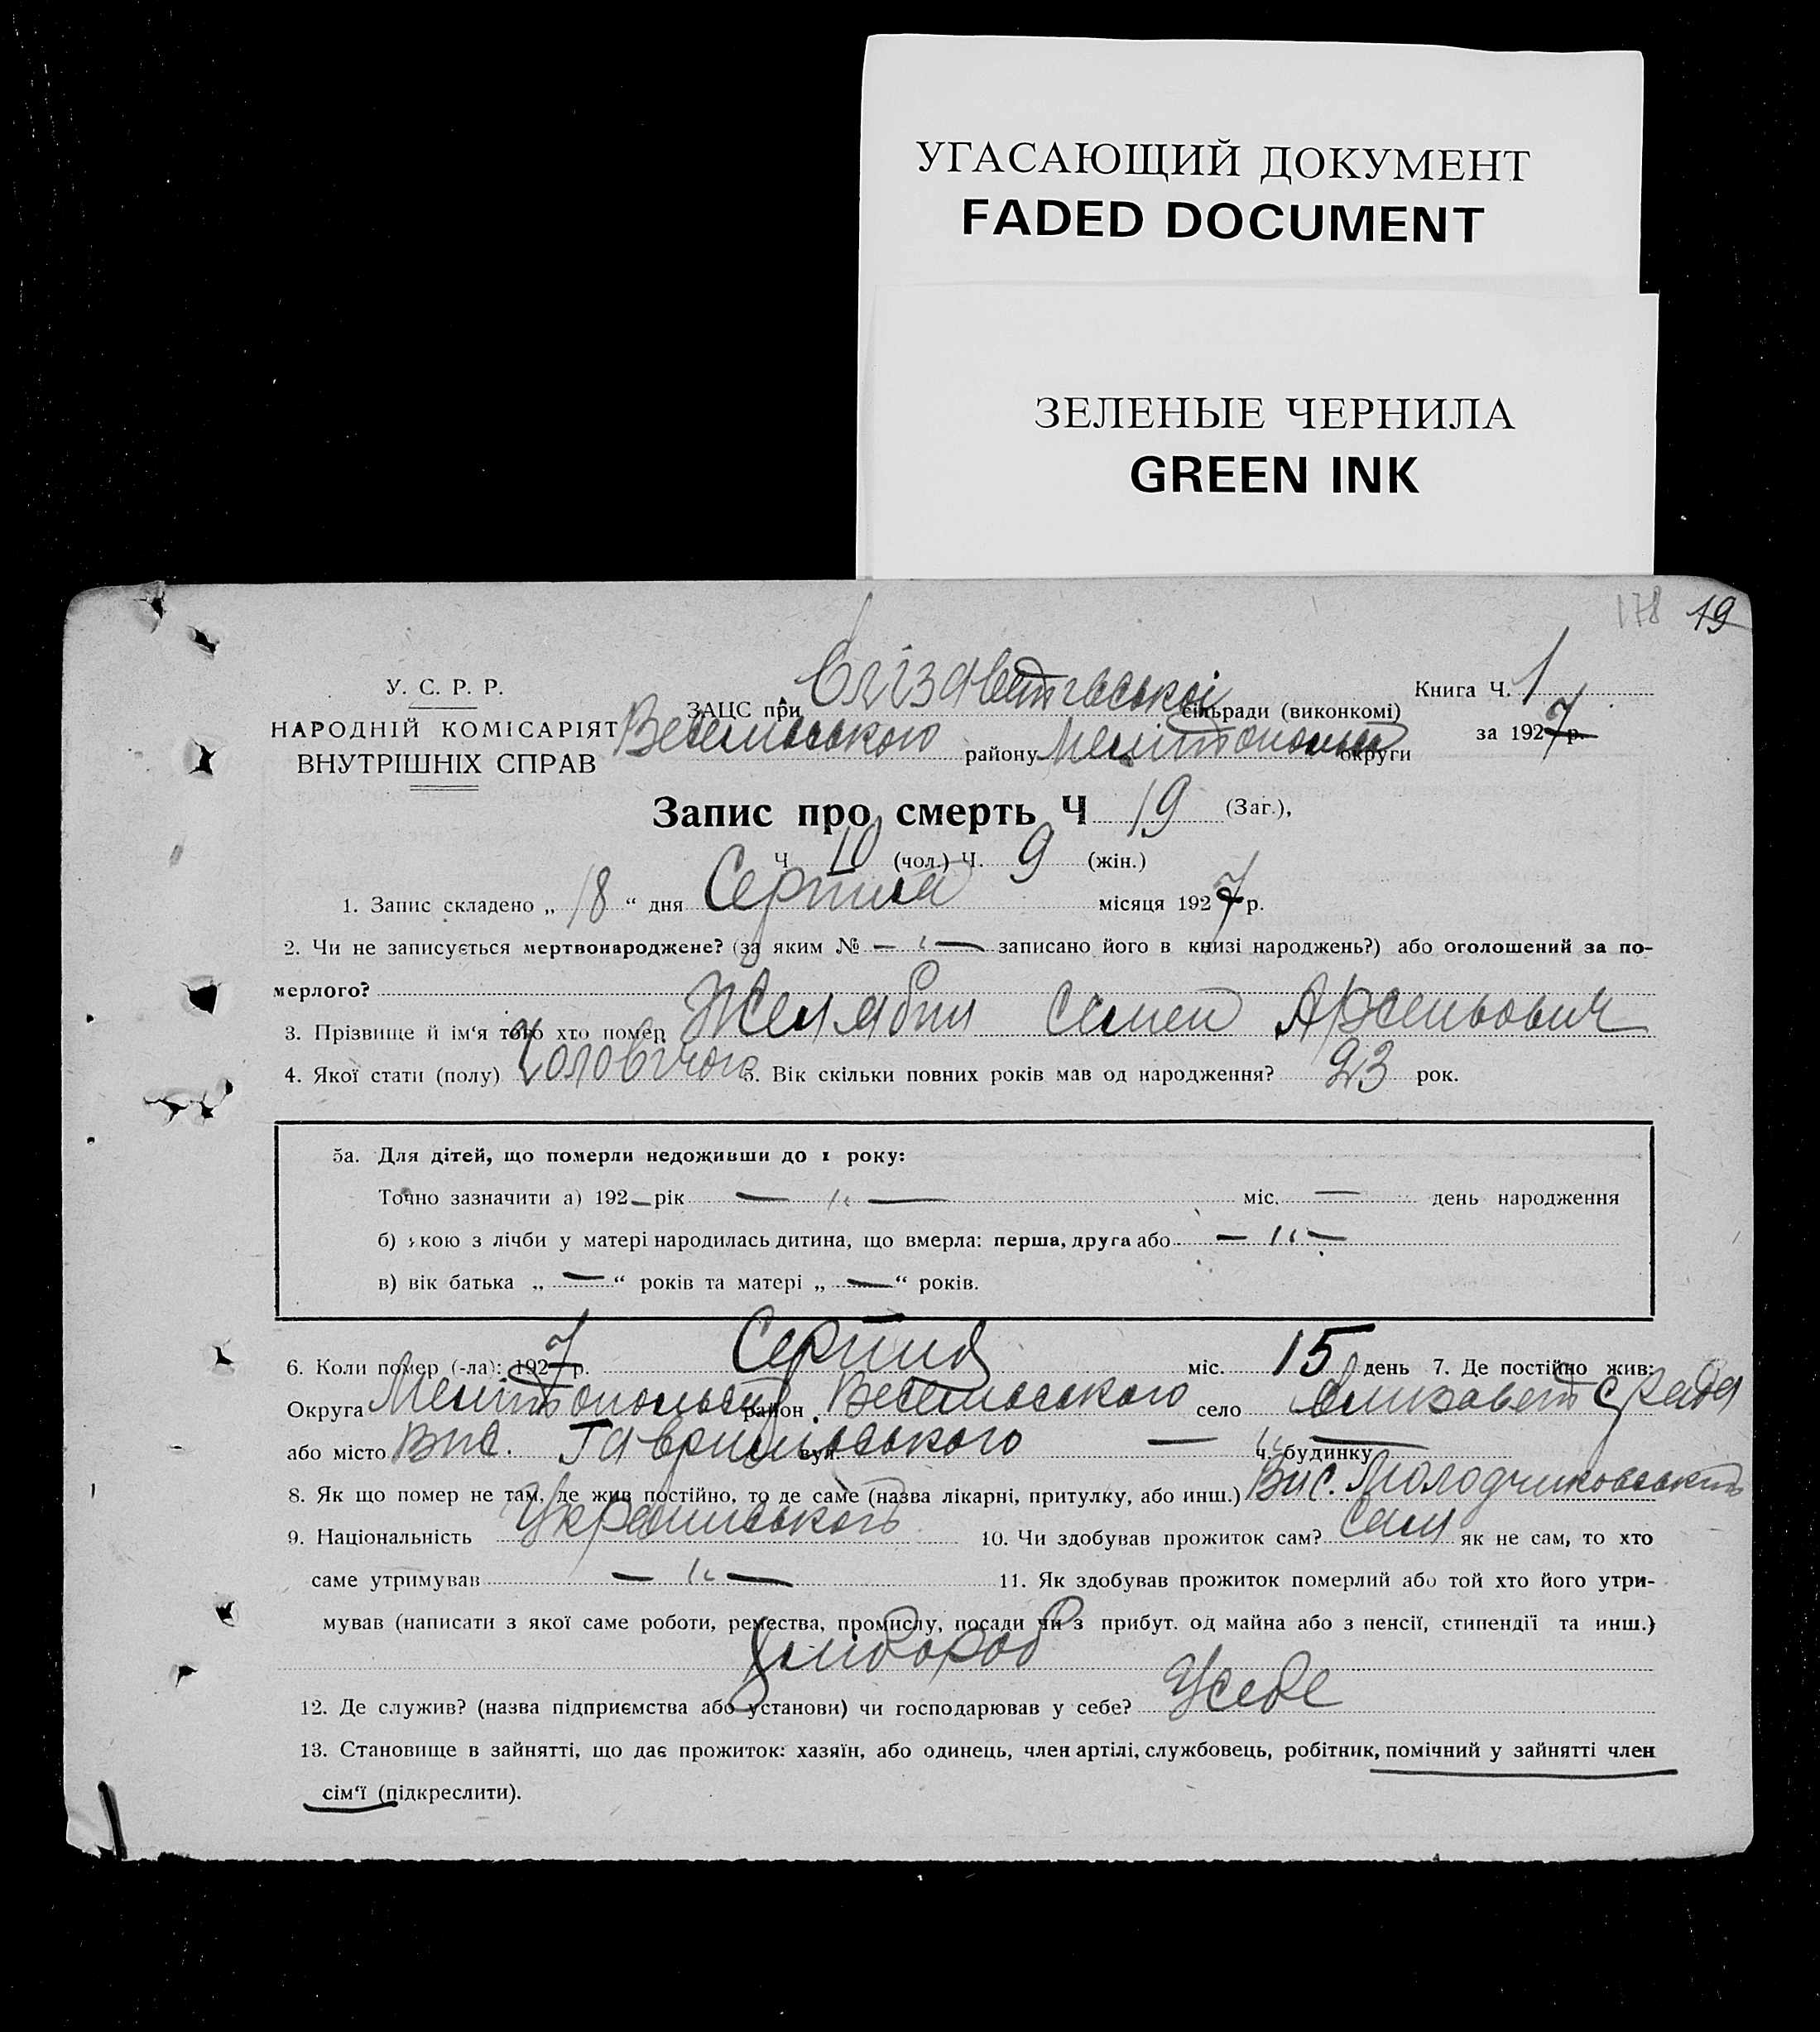 УГАСАЮЩИЙ ДОКУМЕНТ
FADED DOCUMENT
ЗЕЛЕНЫЕ ЧЕРНИЛА
GREEN INK
178 19
У. С. Р. Р.
НАРОДНІЙ КОМІСАРІЯТ
ВНУТРІШНІХ СПРАВ
ЗАЦС при Єлізаветгвської сільради (виконкомі)
Веселивського району Мелитопольсь округи
Книга Ч. 1
за 1927 р.
Запис про смерть Ч 19 (Заг.),
Ч 10 (чол.) Ч. 9 (жін.)
1. Запис складено „ 18 “ дня Серпня місяця 1927 р.
2. Чи не записується мертвонароджене? (за яким № — „ — записано його в книзі народжень?) або оголошений за по-
мерлого?
3. Прізвище й ім‘я того хто помер Желябин Семен Арсеньович
4. Якої стати (полу) Чоловічого 5. Вік скільки повних років мав од народження? 23 рок.
5а. Для дітей, що померли недоживши до 1 року:
Точно зазначити а) 192 — рік — „ — міс. — день народження
б) якою з лічби у матері народилась дитина, що вмерла: перша, друга або — „ —
в) вік батька „ — “ років та матері „ — “ років.
6. Коли помер (-ла): 1927 р. Серпня міс. 15 день 7. Де постійно жив:
Округа Мелитопольсь район Веселивського село Елизавет с рада
або місто вис. Гаврилівського вул. — „ — ч. будинку
8. Як що помер не там, де жив постійно, то де саме (назва лікарні, притулку, або инш.) Вис. Молодчиковський
9. Національність Українського 10. Чи здобував прожиток сам? Сам як не сам, то хто
саме утримував — „ — 11. Як здобував прожиток померлий або той хто його утри-
мував (написати з якої саме роботи, ремества, промислу, посади чи з прибут. од майна або з пенсії, стипендії та инш.)
Хлібороб
12. Де служив? (назва підприємства або установи) чи господарював у себе? У себе
13. Становище в зайнятті, що дає прожиток: хазяїн, або одинець, член артілі, службовець, робітник, помічний у зайнятті член
сім‘ї (підкреслити).